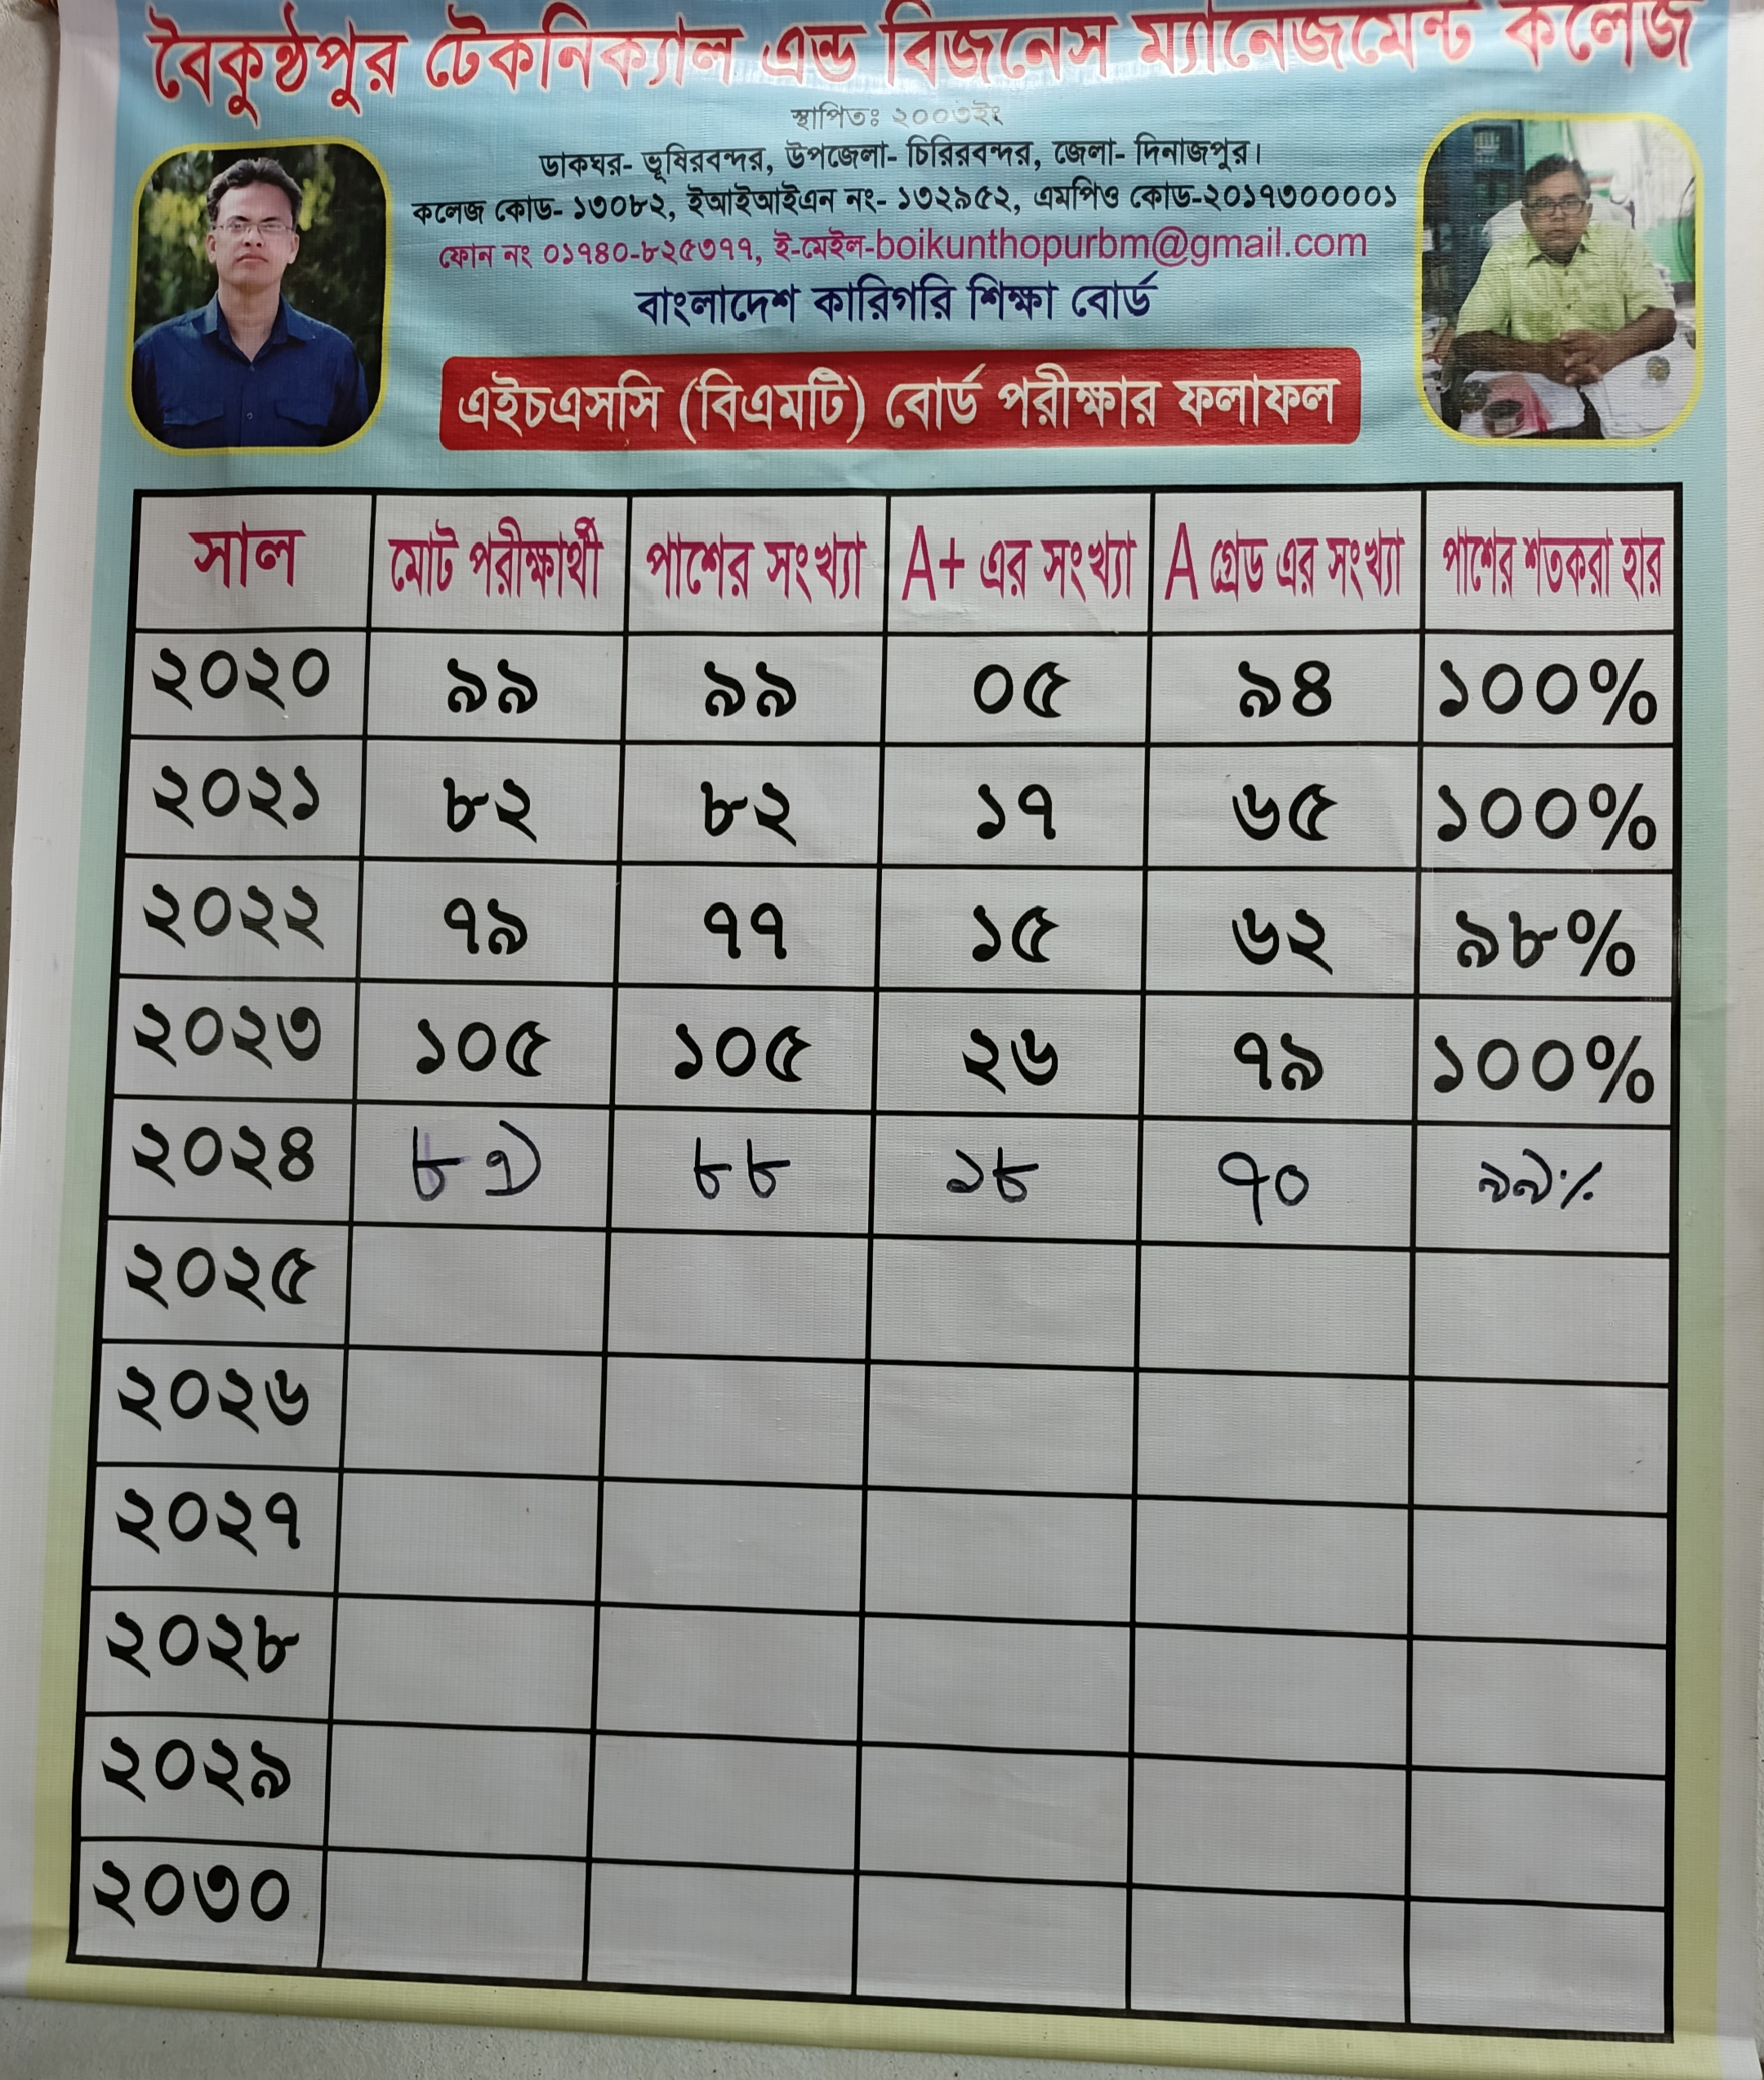 বৈকুণ্ঠপুর টেকনিক্যাল এন্ড বিজনেস ম্যানেজমেন্ট কলেজ
স্থাপিতঃ ২০০৩ইং
ডাকঘর- ভূষিরবন্দর, উপজেলা- চিরিরবন্দর, জেলা- দিনাজপুর।
কলেজ কোড- ১৩০৮২, ইআইআইএন নং- ১৩২৯৫২, এমপিও কোড-২০১৭৩০০০০১
ফোন নং ০১৭৪০-৮২৫৩৭৭, ই-মেইল-boikunthopurbm@gmail.com
বাংলাদেশ কারিগরি শিক্ষা বোর্ড
এইচএসসি (বিএমটি) বোর্ড পরীক্ষার ফলাফল
সাল মোট পরীক্ষার্থী পাশের সংখ্যা A+ এর সংখ্যা A গ্রেড এর সংখ্যা পাশের শতকরা হার
২০২০ ৯৯ ৯৯ ০৫ ৯৪ ১০০%
২০২১ ৮২ ৮২ ১৭ ৬৫ ১০০%
২০২২ ৭৯ ৭৭ ১৫ ৬২ ৯৮%
২০২৩ ১০৫ ১০৫ ২৬ ৭৯ ১০০%
২০২৪ ৮৯ ৮৮ ১৮ ৭০ ৯৯%
২০২৫
২০২৬
২০২৭
২০২৮
২০২৯
২০৩০